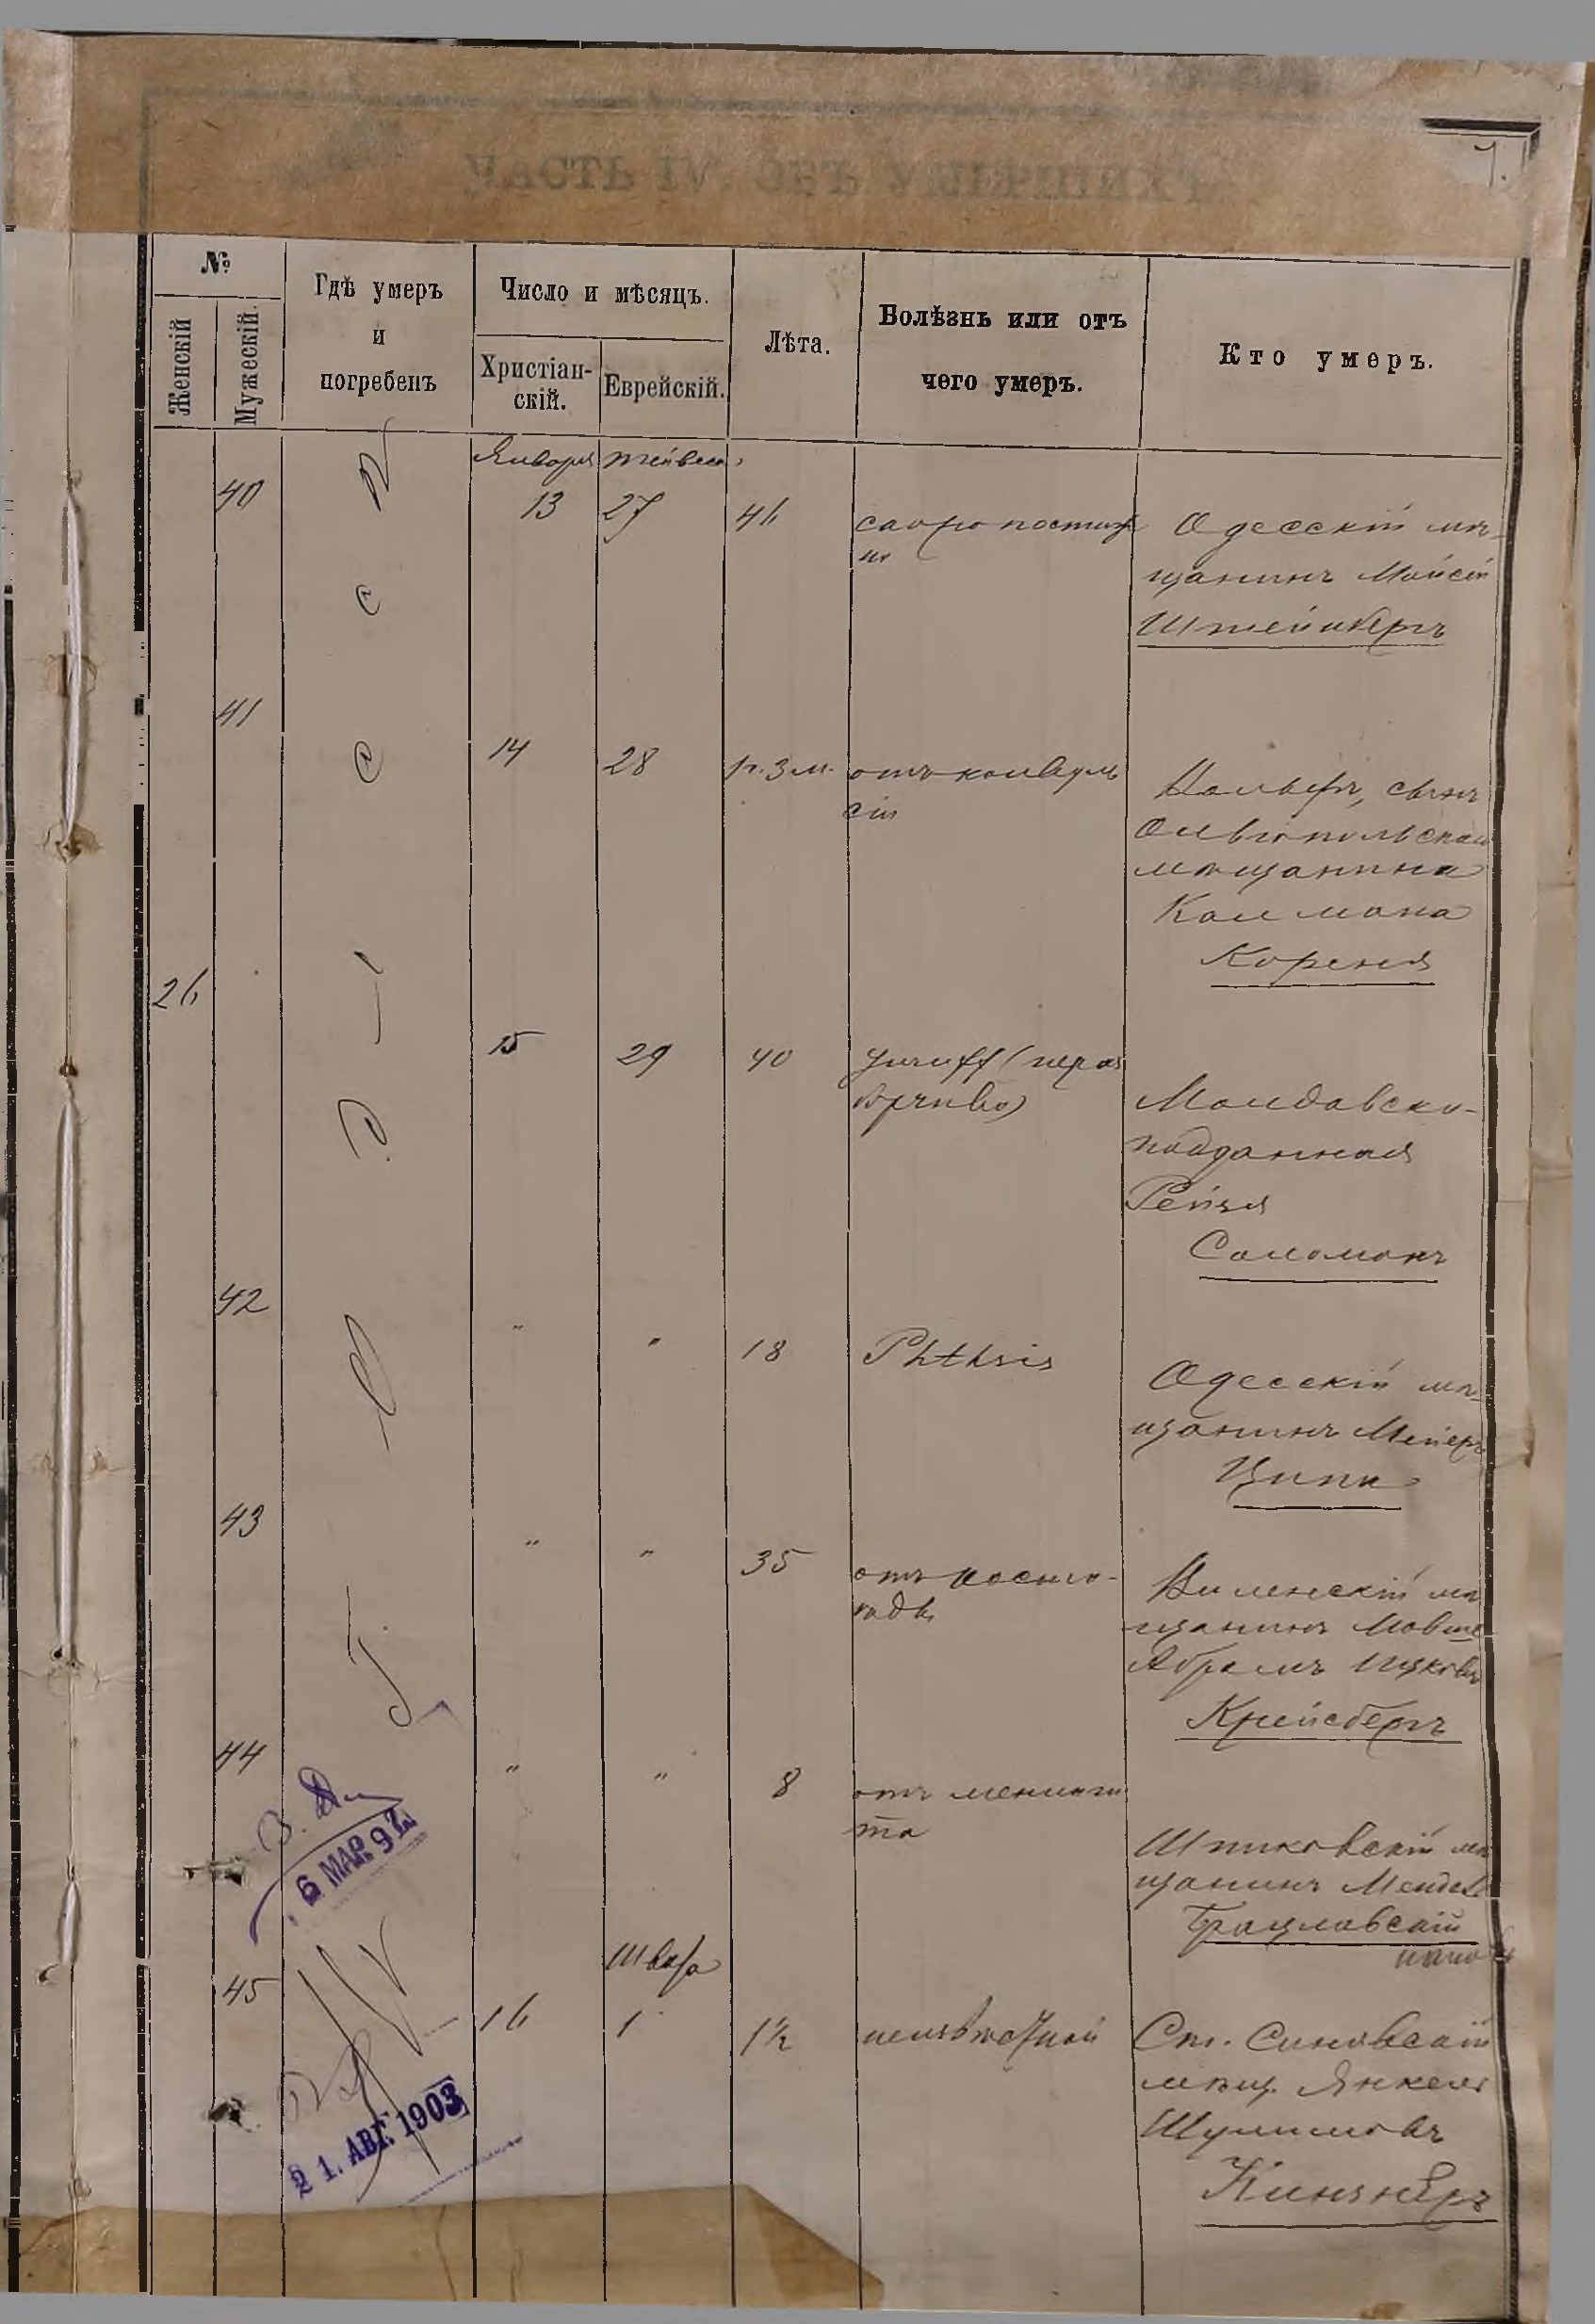 ЧАСТЬ IV. ОБЪ УМЕРШИХЪ
№
Женскій
Мужескій.
Гдѣ умеръ
и
погребенъ
Число и мѣсяцъ.
Христіан-
скій.
Еврейскій.
Лѣта.
Болѣзнь или отъ
чего умеръ.
Кто умеръ.
Января
40
13
27
46
скоропостиж
но
Одесскій мѣ-
щанинъ Мойсей
Штейнбергъ
41
14
28
1 г. 3 м.
отъ конвуль
сіи
Вольфъ, сынъ
Ольвіопольскаго
мѣщанина
Калмана
Кореня
26
15
29
40
Молдавско-
подданная
Рейзя
Соломонъ
42
"
"
18
Phthsis
Одесскій мѣ-
щанинъ Мейеръ
Ципи
43
"
"
35
отъ
Виленскій мѣ
щанинъ Мовше
Абрамъ Ицковъ
Крейсбергъ
44
"
"
8
отъ менинги
та
Шпиковскій мѣ
щанинъ Мендель
Брацлавскій
6 МАР. 92
45
Швата
16
1
1½
неизвѣстной
Ст. Синявскій
мѣщ. Янкель
Шулимовъ
Кинзнеръ
21. АВГ. 1903